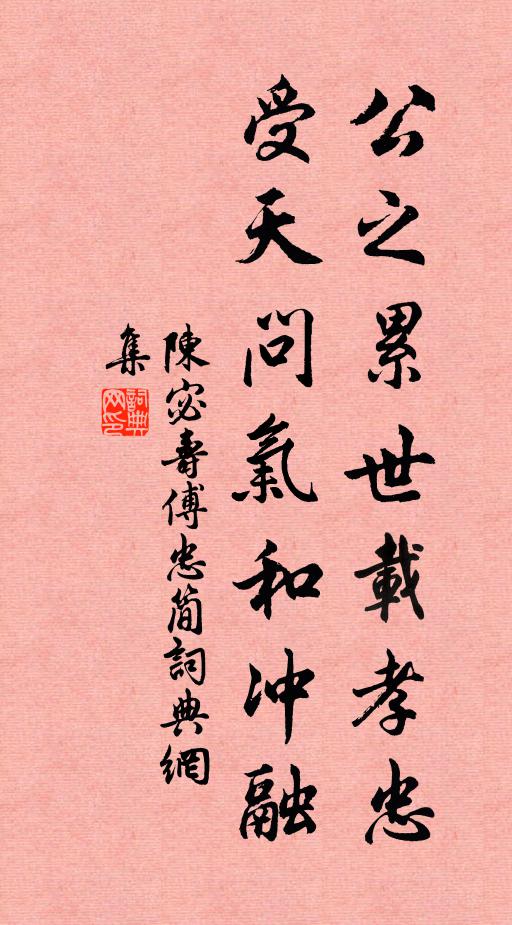 公之累世載孝忠
受天問氣和冲融
陳宓壽傅忠簡詞典網
集
詞典網印